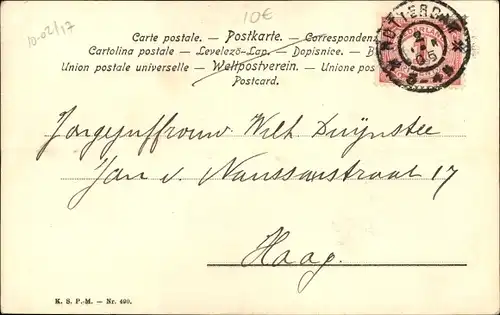 10-02/17
10€
Carte postale. — Postkarte. — Corresponden
Cartolina postale — Levelező-Lap. — Dopisnice. — B
Union postale universelle — Weltpostverein. — Unione pos
Postcard.
ROTTERDAM
Wilh Duijnstee
Jan v. Nanssaustraat 17
Haag.
K. S. P. M. — Nr. 490.